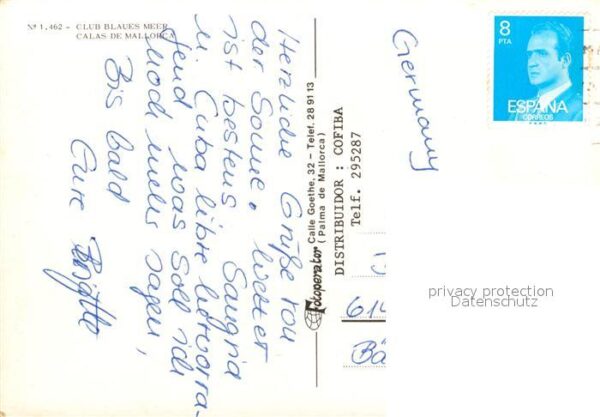 Nº 1.462 - CLUB BLAUES MEER
CALAS DE MALLORCA
Herzliche Grüße von
der Sonne. Wetter
ist bestens Sangria
u. Cuba libre hervorra-
gend was soll ich
noch mehr sagen,
Bis bald
Eure Brigitte
Fotoperator Calle Goethe, 32 - Telef. 28 91 13
(Palma de Mallorca)
DISTRIBUIDOR : COFIBA
Telf. 295287
Germany
8
PTA
ESPAÑA
CORREOS
614
Bä
privacy protection
Datenschutz